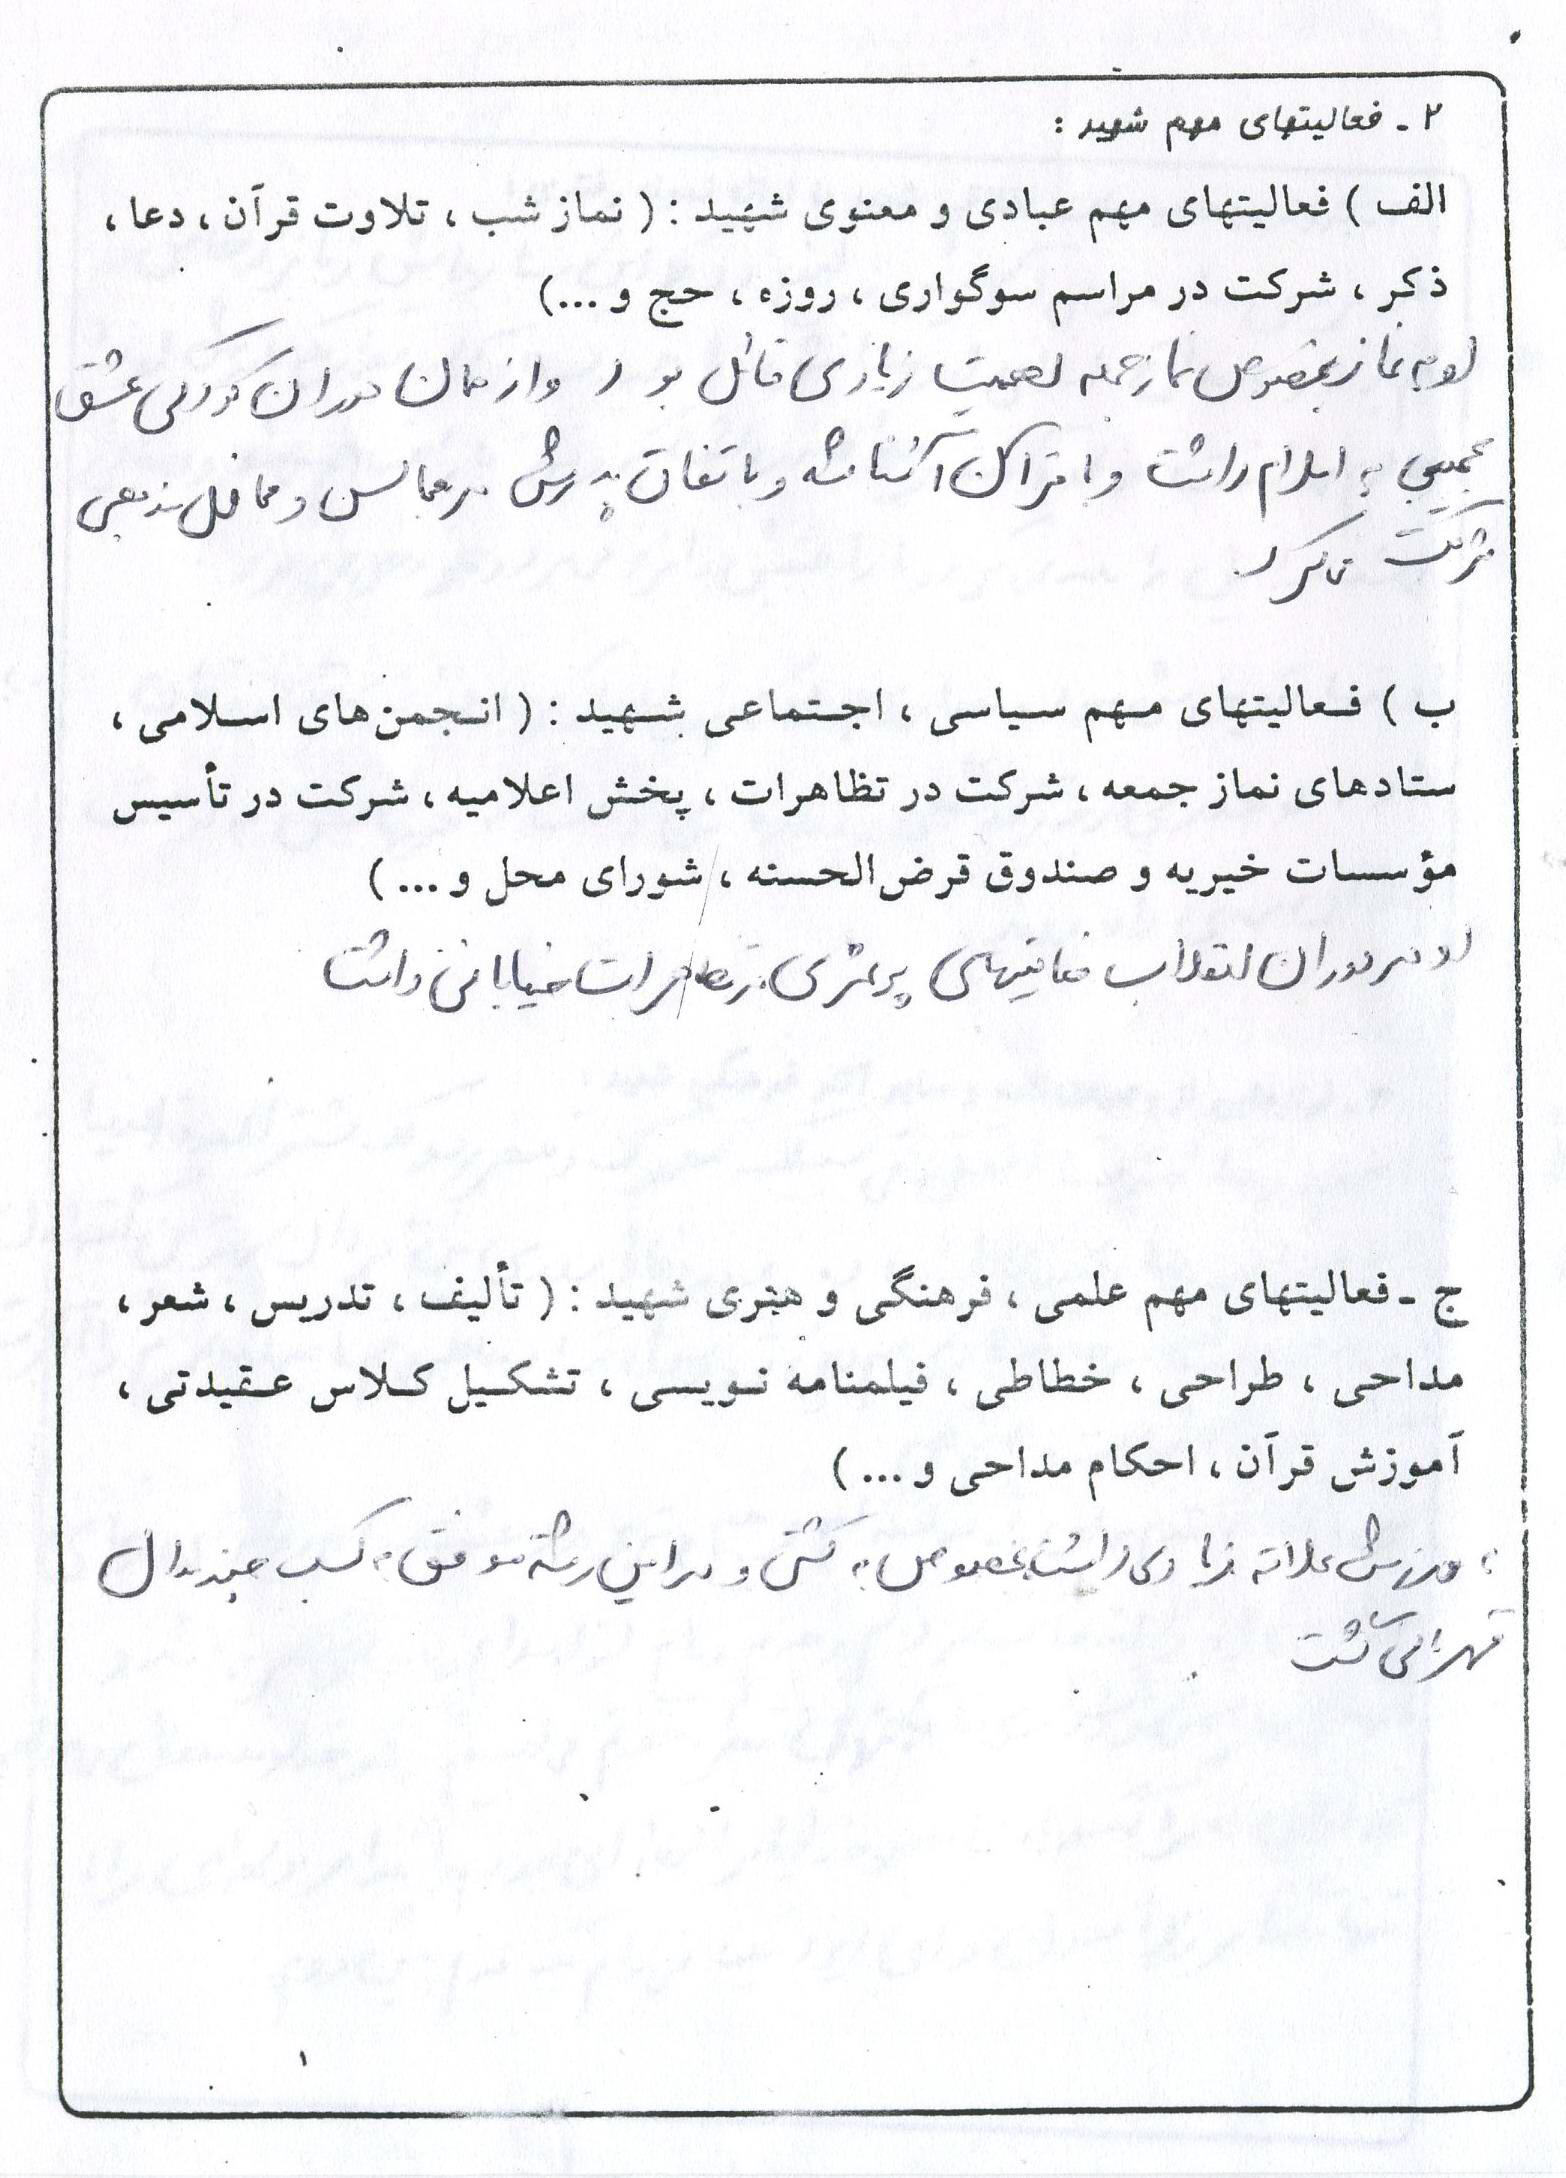 ۲ ـ فعالیتهای مهم شهید :
الف ) فعالیتهای مهم عبادی و معنوی شهید : ( نماز شب ، تلاوت قرآن ، دعا ،
ذکر ، شرکت در مراسم سوگواری ، روزه ، حج و ...)
او به نماز بخصوص نماز جمعه اهمیت زیادی قائل بود و از همان دوران کودکی عشق
عجیبی به اسلام داشت و با قرآن آشنا شد و باتفاق پدرش در مجالس و محافل مذهبی
شرکت می کرد
ب ) فعالیتهای مهم سیاسی ، اجتماعی شهید : ( انجمن‌های اسلامی ،
ستادهای نماز جمعه ، شرکت در تظاهرات ، پخش اعلامیه ، شرکت در تأسیس
مؤسسات خیریه و صندوق قرض‌الحسنه ، شورای محل و ... )
او در دوران انقلاب فعالیتهای پرثمری در تظاهرات خیابانی داشت
ج ـ فعالیتهای مهم علمی ، فرهنگی و هنری شهید : ( تألیف ، تدریس ، شعر ،
مداحی ، طراحی ، خطاطی ، فیلمنامه نویسی ، تشکیل کلاس عقیدتی ،
آموزش قرآن ، احکام مداحی و ... )
به ورزش علاقه زیادی داشت بخصوص به کشتی و در این رشته موفق به کسب چند مدال
قهرمانی گشت